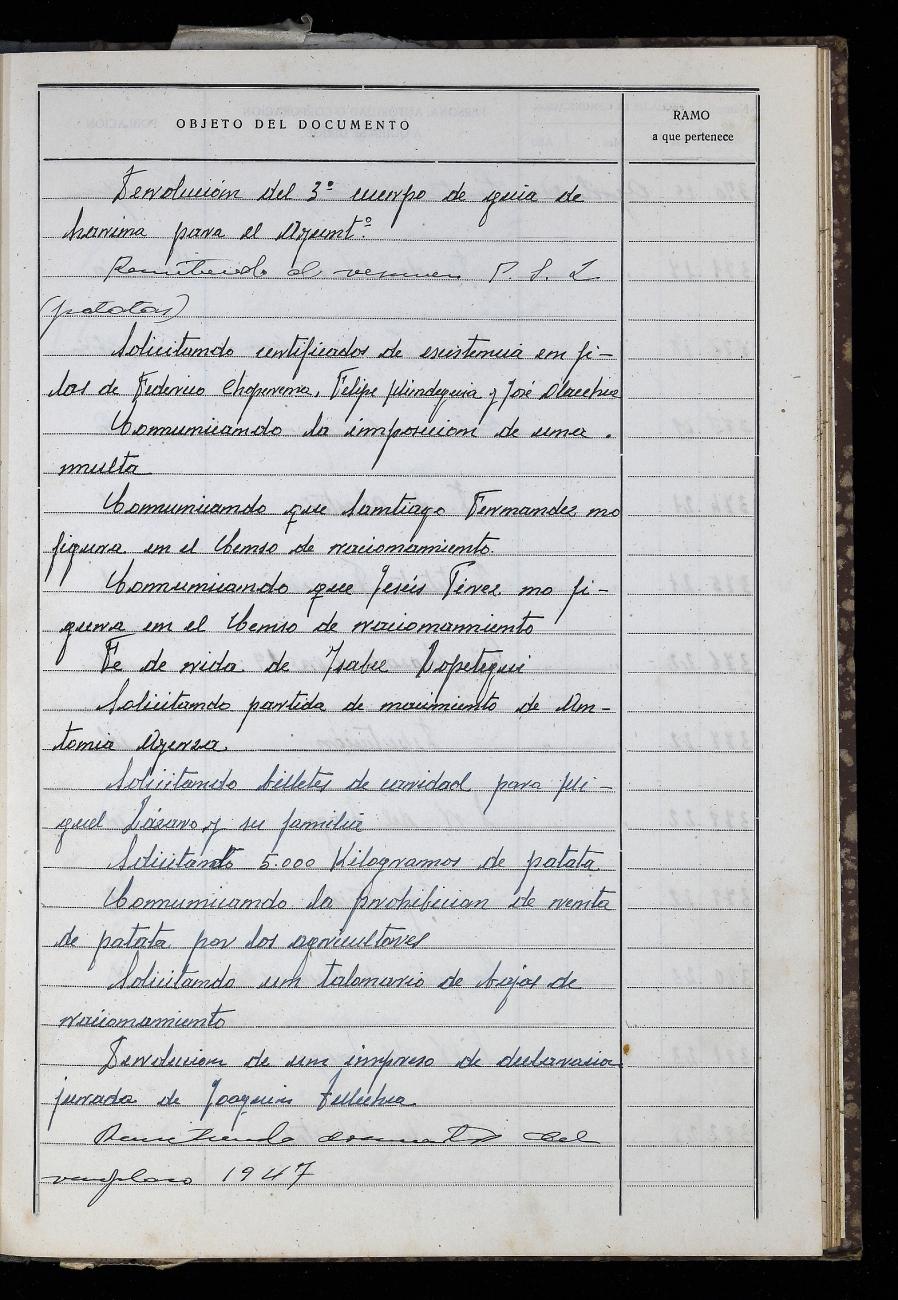 OBJETO DEL DOCUMENTO
RAMO
a que pertenece
Devolución del 3º cuerpo de guia de
harina para el Ayuntº.
Remitiendo el resumen P. S. L
(patatas)
Solicitando certificados de existencia en fi-
las de Federico Choperena, Felipe Mindeguia y José Olaechea
Comunicando la imposicion de una
multa
Comunicando que Santiago Fernandez no
figura en el Censo de racionamiento.
Comunicando que Jesús Pérez no fi-
gura en el Censo de racionamiento
Fe de vida de Isabel Lopetegui
Solicitando partida de nacimiento de An-
tonia
Solicitando billetes de caridad para Mi-
guel Lázaro y su familia
Solicitando 5.000 Kilogramos de patata
Comunicando la prohibician de venta
de patata por los agricultores
Solicitando un talonario de bajas de
racionamiento
Devolucion de un impreso de declaracion
jurada de Joaquin Tellechea
Remitiendo documentos del
remplazo 1947